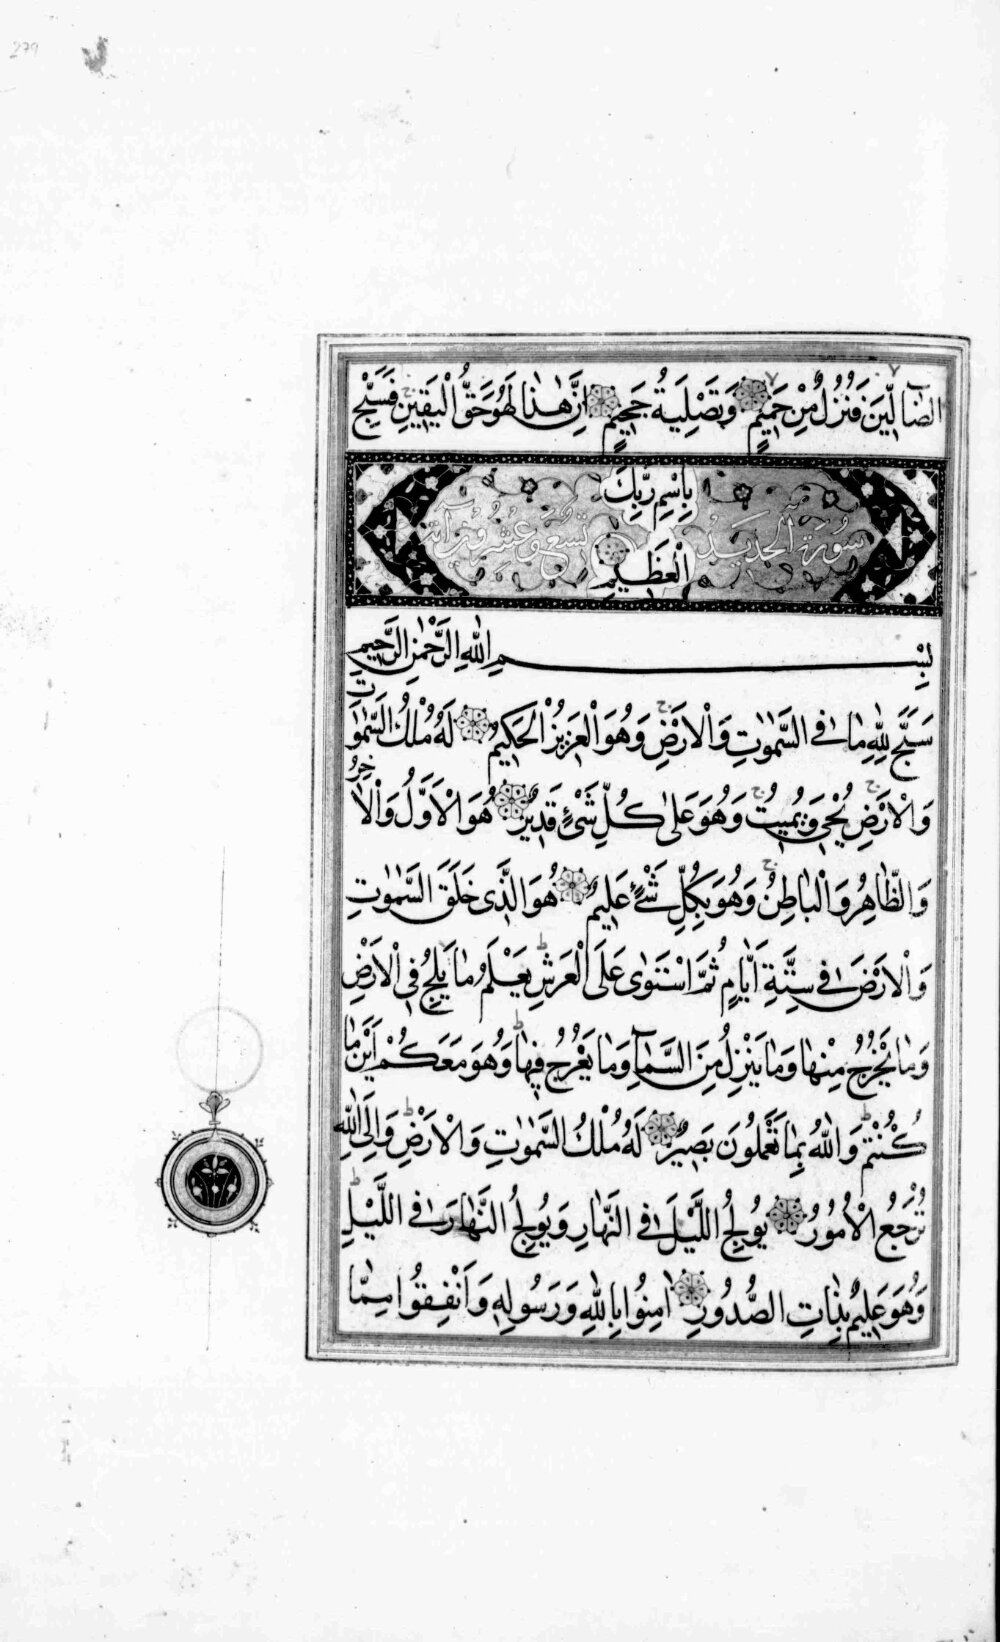 279
الضَّالِّينَ فَنُزُلٌ مِنْ حَمِيمٍ وَتَصْلِيَةُ جَحِيمٍ إِنَّ هٰذَا لَهُوَ حَقُّ الْيَقِينِ فَسَبِّحْ
بِاسْمِ رَبِّكَ
سُورَةُ الْحَدِيدِ تِسْعٌ وَعِشْرُونَ آيَة
الْعَظِيمِ
بِسْمِ اللّٰهِ الرَّحْمٰنِ الرَّحِيمِ
سَبَّحَ لِلّٰهِ مَا فِي السَّمٰوَاتِ وَالْاَرْضِ وَهُوَ الْعَزِيزُ الْحَكِيمُ لَهُ مُلْكُ السَّمٰوَاتِ
وَالْاَرْضِ يُحْيِي وَيُمِيتُ وَهُوَ عَلٰى كُلِّ شَيْءٍ قَدِيرٌ هُوَ الْاَوَّلُ وَالْاٰخِرُ
وَالظَّاهِرُ وَالْبَاطِنُ وَهُوَ بِكُلِّ شَيْءٍ عَلِيمٌ هُوَ الَّذِي خَلَقَ السَّمٰوَاتِ
وَالْاَرْضَ فِي سِتَّةِ اَيَّامٍ ثُمَّ اسْتَوٰى عَلَى الْعَرْشِ يَعْلَمُ مَا يَلِجُ فِي الْاَرْضِ
وَمَا يَخْرُجُ مِنْهَا وَمَا يَنْزِلُ مِنَ السَّمَاءِ وَمَا يَعْرُجُ فِيهَا وَهُوَ مَعَكُمْ اَيْنَ مَا
كُنْتُمْ وَاللّٰهُ بِمَا تَعْمَلُونَ بَصِيرٌ لَهُ مُلْكُ السَّمٰوَاتِ وَالْاَرْضِ وَاِلَى اللّٰهِ
تُرْجَعُ الْاُمُورُ يُولِجُ اللَّيْلَ فِي النَّهَارِ وَيُولِجُ النَّهَارَ فِي اللَّيْلِ
وَهُوَ عَلِيمٌ بِذَاتِ الصُّدُورِ اٰمِنُوا بِاللّٰهِ وَرَسُولِهِ وَاَنْفِقُوا مِمَّا